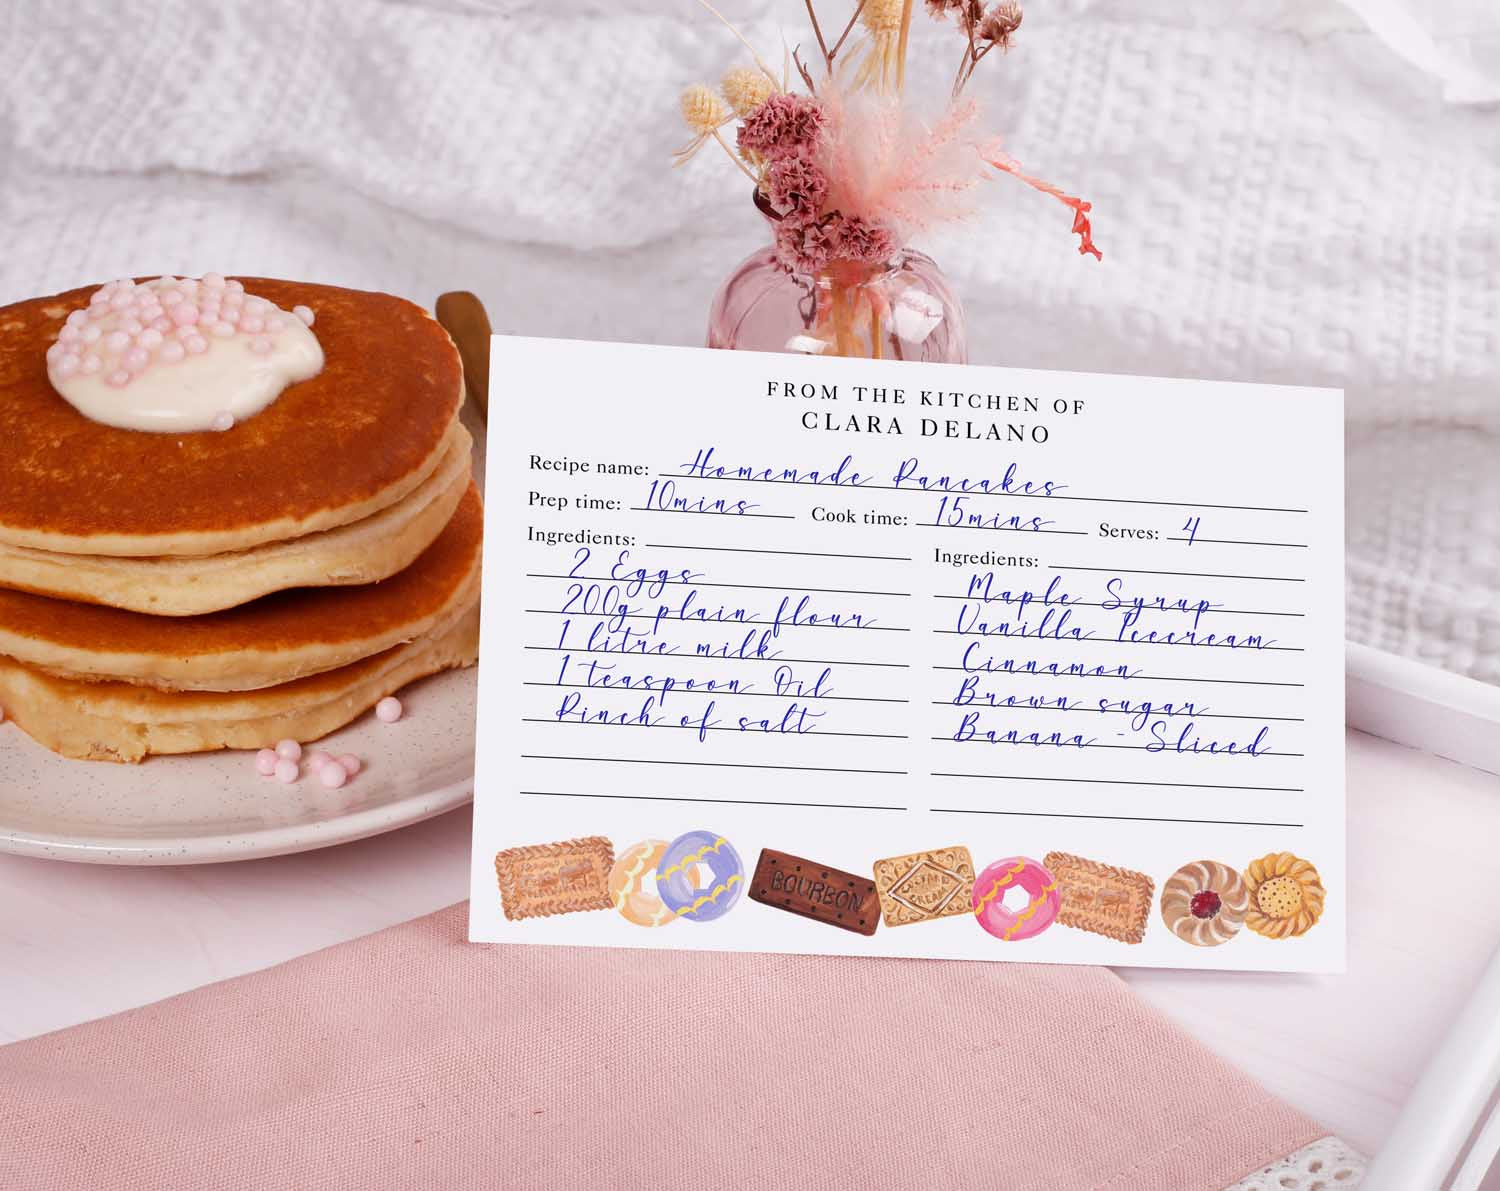 FROM THE KITCHEN OF
CLARA DELANO
Recipe name: Homemade Pancakes
Prep time: 10mins Cook time: 15mins Serves: 4
Ingredients:
2 Eggs
200g plain flour
1 litre milk
1 teaspoon Oil
Pinch of salt
Ingredients:
Maple Syrup
Vanilla Icecream
Cinnamon
Brown sugar
Banana - Sliced
BOURBON
CREAM